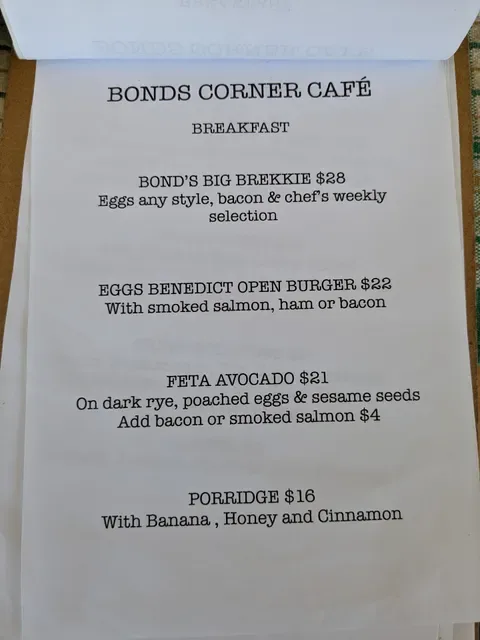 BONDS CORNER CAFÉ
BREAKFAST
BOND'S BIG BREKKIE $28
Eggs any style, bacon & chef's weekly
selection
EGGS BENEDICT OPEN BURGER $22
With smoked salmon, ham or bacon
FETA AVOCADO $21
On dark rye, poached eggs & sesame seeds
Add bacon or smoked salmon $4
PORRIDGE $16
With Banana , Honey and Cinnamon